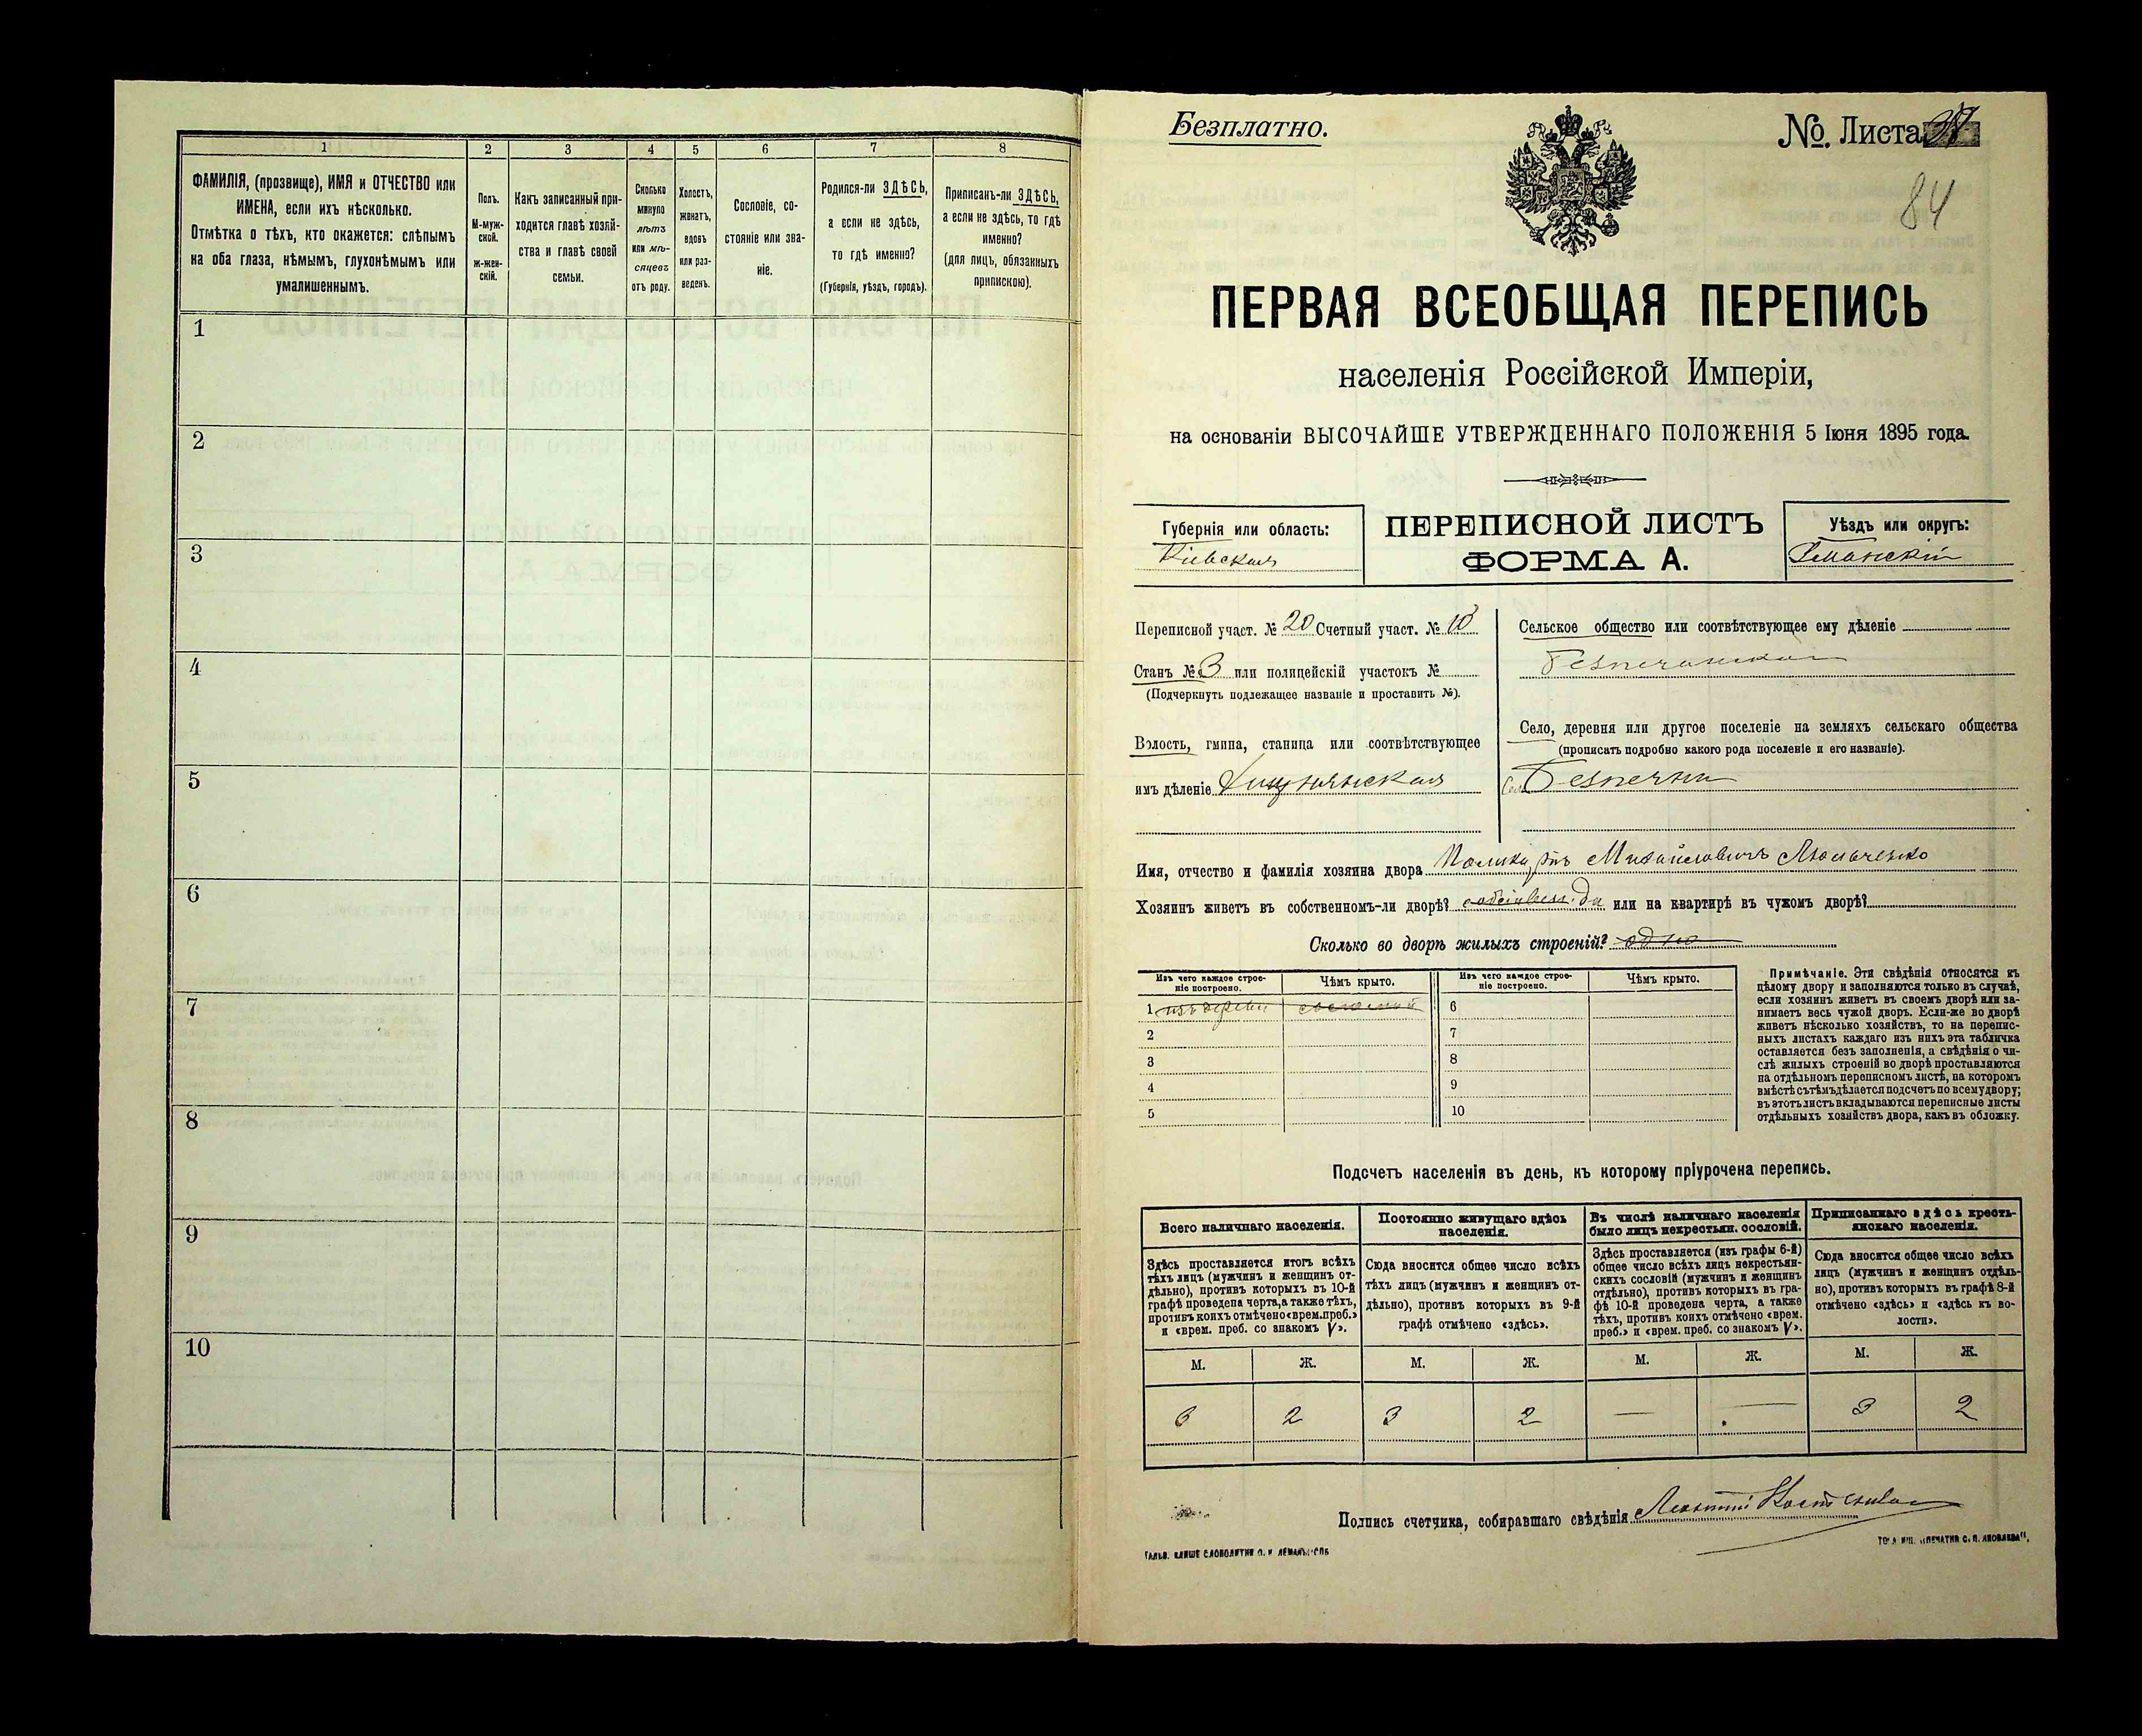 1 2 3 4 5 6 7 8
ФАМИЛІЯ, (прозвище), ИМЯ и ОТЧЕСТВО или
ИМЕНА, если ихъ нѣсколько.
Отмѣтка о тѣхъ, кто окажется: слѣпымъ
на оба глаза, нѣмымъ, глухонѣмымъ или
умалишеннымъ.
Полъ.
М-муж-
ской.
Ж-жен-
скій.
Какъ записанный при-
ходится главѣ хозяй-
ства и главѣ своей
семьи.
Сколько
минуло
лѣтъ
или мѣ-
сяцевъ
отъ роду.
Холостъ,
женатъ,
вдовъ
или раз-
веденъ.
Сословіе, со-
стояніе или зва-
ніе.
Родился-ли ЗДѢСЬ,
а если не здѣсь,
то гдѣ именно?
(Губернія, уѣздъ, городъ).
Приписанъ-ли ЗДѢСЬ,
а если не здѣсь, то гдѣ
именно?
(для лицъ, обязанныхъ
припискою).
1
2
3
4
5
6
7
8
9
10
Безплатно.
No. Листа
84
ПЕРВАЯ ВСЕОБЩАЯ ПЕРЕПИСЬ
населенія Россійской Имперіи,
на основаніи ВЫСОЧАЙШЕ УТВЕРЖДЕННАГО ПОЛОЖЕНІЯ 5 Іюня 1895 года.
Губернія или область:
Кіевская
ПЕРЕПИСНОЙ ЛИСТЪ
ФОРМА А.
Уѣздъ или округъ:
Уманскій
Переписной участ. № 20 Счетный участ. № 10
Станъ № 3 или полицейскій участокъ №
(Подчеркнуть подлежащее названіе и проставить №).
Волость, гмина, станица или соотвѣтствующее
имъ дѣленіе
Сельское общество или соотвѣтствующее ему дѣленіе
Безпечанское
Село, деревня или другое поселеніе на земляхъ сельскаго общества
(прописать подробно какого рода поселеніе и его названіе).
Село Безпечна
Имя, отчество и фамилія хозяина двора Поликарпъ Михайловичъ
Хозяинъ живетъ въ собственномъ-ли дворѣ? да или на квартирѣ въ чужомъ дворѣ?
Сколько во дворѣ жилыхъ строеній? одно
Изъ чего каждое строе-
ніе построено.
Чѣмъ крыто.
Изъ чего каждое строе-
ніе построено.
Чѣмъ крыто.
1 изъ дерева соломой 6
2 7
3 8
4 9
5 10
Примѣчаніе. Эти свѣдѣнія относятся къ
цѣлому двору и заполняются только въ случаѣ,
если хозяинъ живетъ въ своемъ дворѣ или за-
нимаетъ весь чужой дворъ. Если-же во дворѣ
живетъ нѣсколько хозяйствъ, то на перепис-
ныхъ листахъ каждаго изъ нихъ эта табличка
оставляется безъ заполненія, а свѣдѣнія о чи-
слѣ жилыхъ строеній во дворѣ проставляются
на отдѣльномъ переписномъ листѣ, на которомъ
вмѣстѣ съ тѣмъ дѣлается подсчетъ по всему двору;
въ этотъ листъ вкладываются переписные листы
отдѣльныхъ хозяйствъ двора, какъ въ обложку.
Подсчетъ населенія въ день, къ которому пріурочена перепись.
Всего наличнаго населенія.
Здѣсь проставляется итогъ всѣхъ
тѣхъ лицъ (мужчинъ и женщинъ от-
дѣльно), противъ которыхъ въ 10-й
графѣ проведена черта, а также тѣхъ,
противъ коихъ отмѣчено «врем. преб.»
и «врем. преб. со знакомъ V».
Постоянно живущаго здѣсь
населенія.
Сюда вносится общее число всѣхъ
тѣхъ лицъ (мужчинъ и женщинъ от-
дѣльно), противъ которыхъ въ 9-й
графѣ отмѣчено «здѣсь».
Въ числѣ наличнаго населенія
было лицъ некрестьян. сословій.
Здѣсь проставляется (изъ графы 6-й)
общее число всѣхъ лицъ некрестьян-
скихъ сословій (мужчинъ и женщинъ
отдѣльно), противъ которыхъ въ гра-
фѣ 10-й проведена черта, а также
тѣхъ, противъ коихъ отмѣчено «врем.
преб.» и «врем. преб. со знакомъ V».
Приписаннаго здѣсь кресть-
янскаго населенія.
Сюда вносится общее число всѣхъ
лицъ (мужчинъ и женщинъ отдѣль-
но), противъ которыхъ въ графѣ 8-й
отмѣчено «здѣсь» и «здѣсь къ во-
лости».
М. Ж. М. Ж. М. Ж. М. Ж.
3 2 3 2 — — 3 2
Подпись счетчика, собиравшаго свѣдѣнія